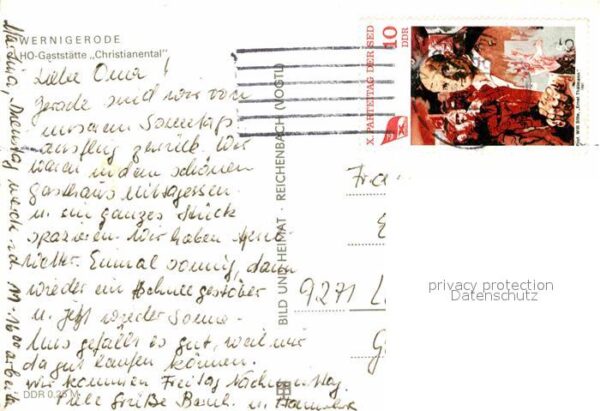 WERNIGERODE
HO-Gaststätte „Christianental"
Liebe Oma!
Gerade sind wir von
unserem Sonntags-
ausflug zurück. Wir
waren in dem schönen
Gasthaus Mittagessen
u. ein ganzes Stück
spazieren. Wir haben April-
wetter. Einmal sonnig, dann
wieder ein Schneegestöber
u. jetzt wieder Sonne.
Uns gefällts so gut, weil wir
da gut laufen können.
Wir kommen Freitag Nachmittag.
Viele Grüße u.
DDR 0,25 M
BILD UND HEIMAT · REICHENBACH (VOGTL)
X. PARTEITAG DER SED
10
DDR
Prof. Willi Sitte, „Ernst Thälmann"
9271
privacy protection
Datenschutz